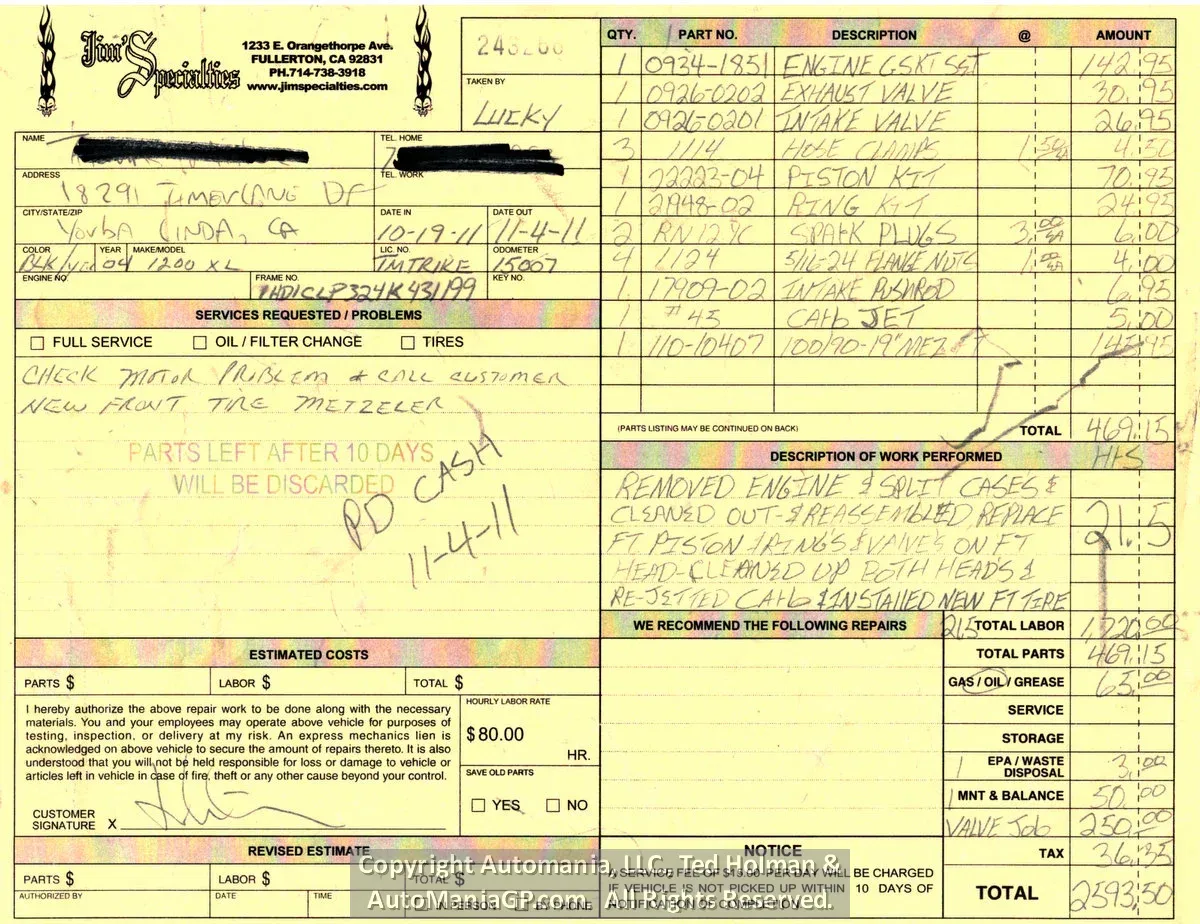 Jim's Specialties
1233 E. Orangethorpe Ave.
FULLERTON, CA 92831
PH.714-738-3918
www.jimspecialties.com
TAKEN BY
LUCKY
NAME
TEL. HOME
TEL. WORK
ADDRESS
18291
CITY/STATE/ZIP
YORBA LINDA, CA
DATE IN
10-19-11
DATE OUT
11-4-11
COLOR
YEAR
04
MAKE/MODEL
1200 XL
LIC. NO.
TMTRIKE
ODOMETER
15007
ENGINE NO.
FRAME NO.
1HD1CLP324K431199
KEY NO.
SERVICES REQUESTED / PROBLEMS
FULL SERVICE OIL / FILTER CHANGE TIRES
CHECK MOTOR PROBLEM & CALL CUSTOMER
NEW FRONT TIRE METZELER
PARTS LEFT AFTER 10 DAYS
WILL BE DISCARDED
PD CASH
11-4-11
ESTIMATED COSTS
PARTS $ LABOR $ TOTAL $
I hereby authorize the above repair work to be done along with the necessary
materials. You and your employees may operate above vehicle for purposes of
testing, inspection, or delivery at my risk. An express mechanics lien is
acknowledged on above vehicle to secure the amount of repairs thereto. It is also
understood that you will not be held responsible for loss or damage to vehicle or
articles left in vehicle in case of fire, theft or any other cause beyond your control.
CUSTOMER
SIGNATURE X
HOURLY LABOR RATE
$80.00
HR.
SAVE OLD PARTS
YES NO
REVISED ESTIMATE
PARTS $ LABOR $ TOTAL $
AUTHORIZED BY DATE TIME
IN PERSON BY PHONE
QTY. PART NO. DESCRIPTION @ AMOUNT
1 0934-1851 ENGINE GSKT SET 142.95
1 0926-0202 EXHAUST VALVE 30.95
1 0926-0201 INTAKE VALVE 26.95
3 1114 HOSE CLAMPS 1.50 EA 4.50
1 22223-04 PISTON KIT 70.95
1 21948-02 RING KIT 24.95
2 SPARK PLUGS 3.00 EA 6.00
4 1124 5/16-24 FLANGE NUTS 1.00 EA 4.00
1 17909-02 INTAKE PUSHROD 6.95
1 #45 CARB JET 5.00
1 110-10407 100/90-19" MEZ FT 145.95
(PARTS LISTING MAY BE CONTINUED ON BACK)
TOTAL 469.15
DESCRIPTION OF WORK PERFORMED HRS
REMOVED ENGINE & SPLIT CASES &
CLEANED OUT - & REASSEMBLED REPLACE
21.5
FT PISTON & RING'S & VALVE'S ON FT
HEAD-CLEANED UP BOTH HEAD'S &
RE-JETTED CARB & INSTALLED NEW FT TIRE
WE RECOMMEND THE FOLLOWING REPAIRS
21.5 TOTAL LABOR 1,720.00
TOTAL PARTS 469.15
GAS / OIL / GREASE 65.00
SERVICE
STORAGE
1 EPA / WASTE
DISPOSAL 3.00
1 MNT & BALANCE 50.00
VALVE JOB 250.00
TAX 36.35
TOTAL 2593.50
NOTICE
A SERVICE FEE OF $15.00 PER DAY WILL BE CHARGED
IF VEHICLE IS NOT PICKED UP WITHIN 10 DAYS OF
NOTIFICATION OF COMPLETION.
Copyright Automania, LLC, Ted Holman &
AutoManiaGP.com, All Rights Reserved.